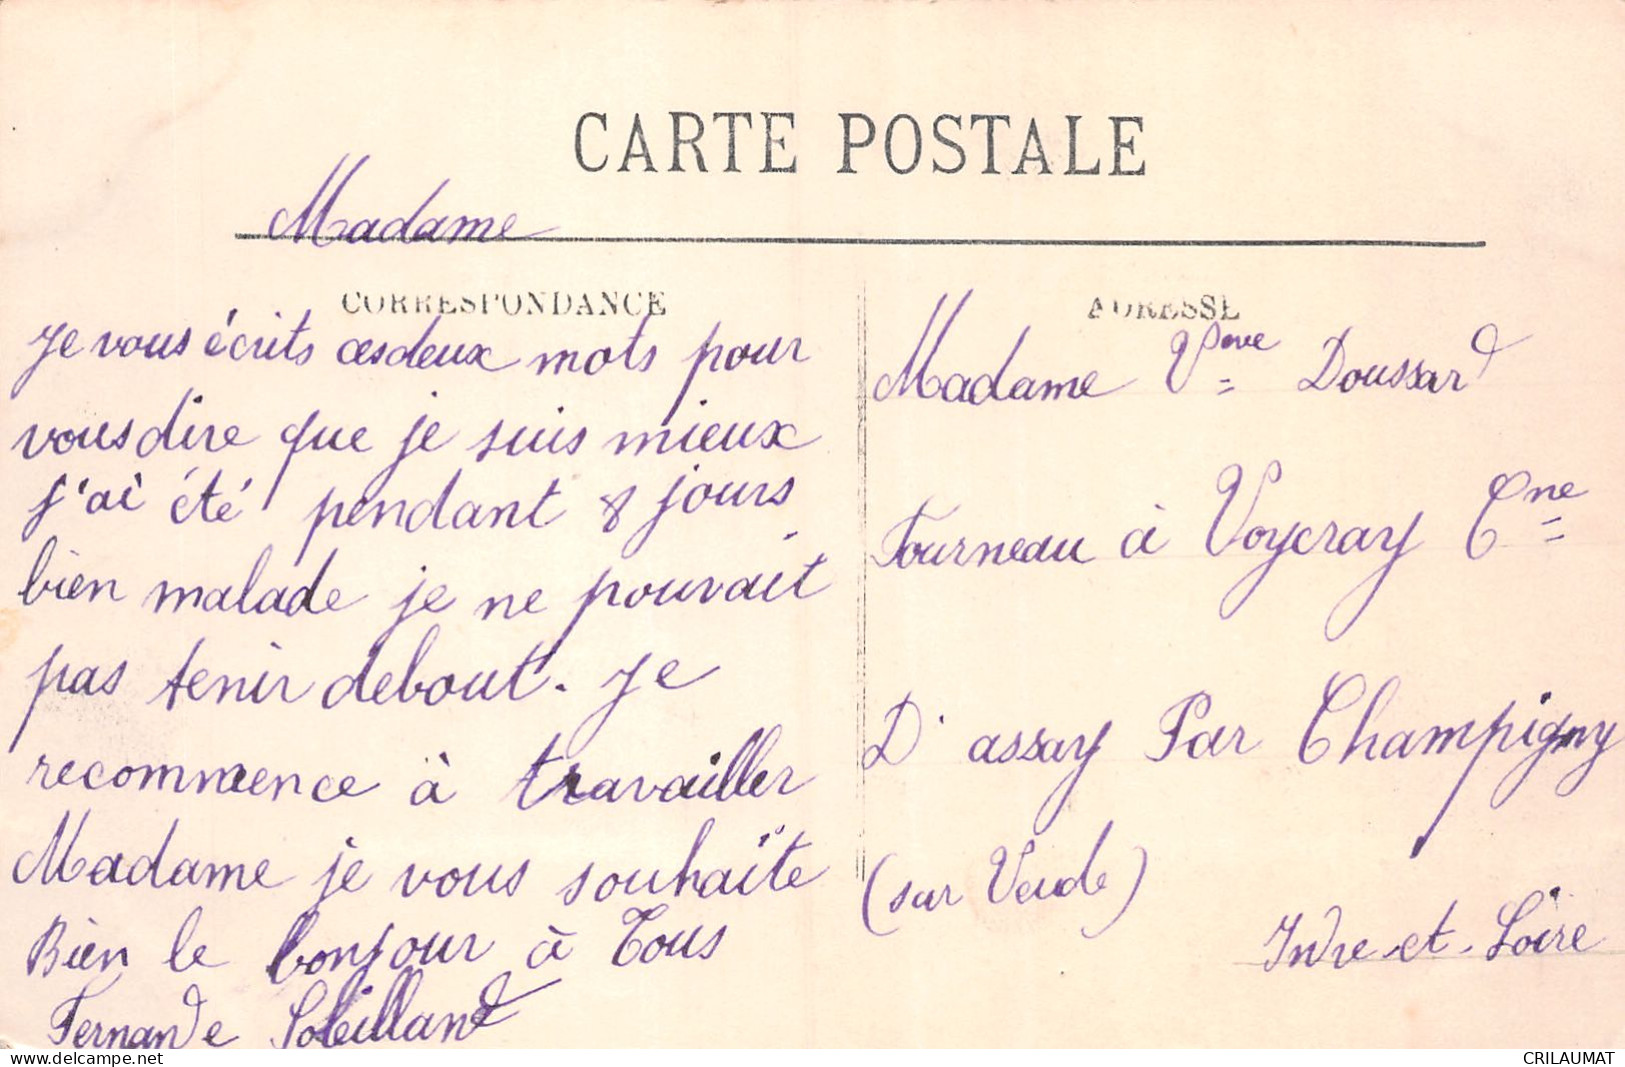 CARTE POSTALE
Madame
CORRESPONDANCE
Je vous écrits ces deux mots pour
vous dire que je suis mieux
j'ai été pendant 8 jours
bien malade je ne pouvait
pas tenir debout. Je
recommence à travailler
Madame je vous souhaite
Bien le bonjour à Tous
Fernande
ADRESSE
Madame Veuve Doussard
Fourneau à Voycray Cne
D'assay Par Champigny
(sur Veude)
Indre-et-Loire
CRILAUMAT